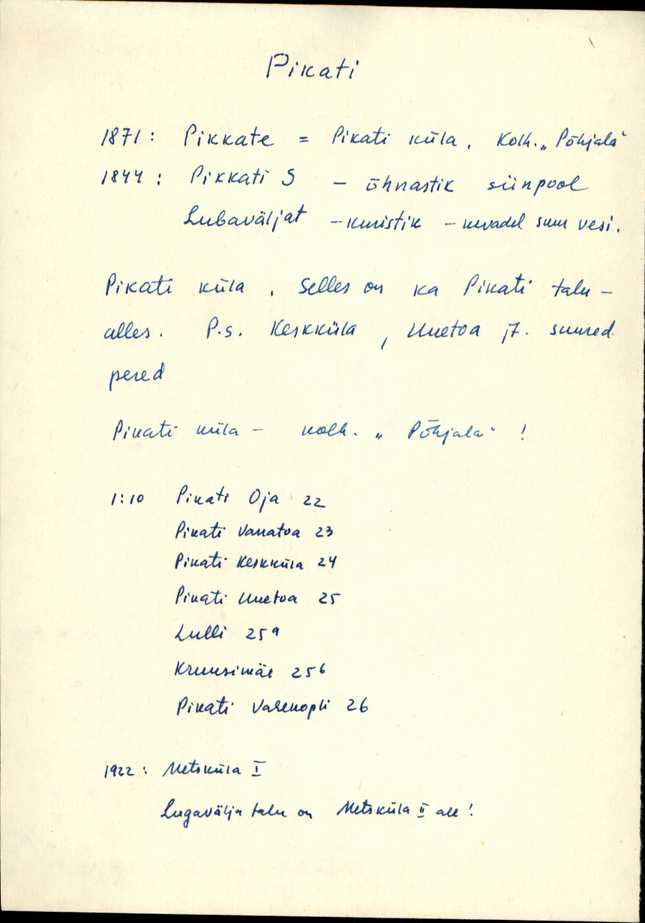 Pikati
1871: Pikkate = Pikati küla. Kolh. „Põhjala"
1844: Pikkati S - ühnastik siinpool
Lubaväljat - kuristik - kevadel suur vesi.
Pikati küla. Selles on ka Pikati talu -
alles. P.s. Keskküla, Uuetoa j.t. suured
pered
Pikati küla - kolh. „Põhjala" !
1:10 Pikati Oja 22
Pikati Vanatoa 23
Pikati Keskküla 24
Pikati Uuetoa 25
Lulli 25a
Kruusimäe 25b
Pikati 26
1922: Metsküla I
Lugavälja talu on Metsküla II all!